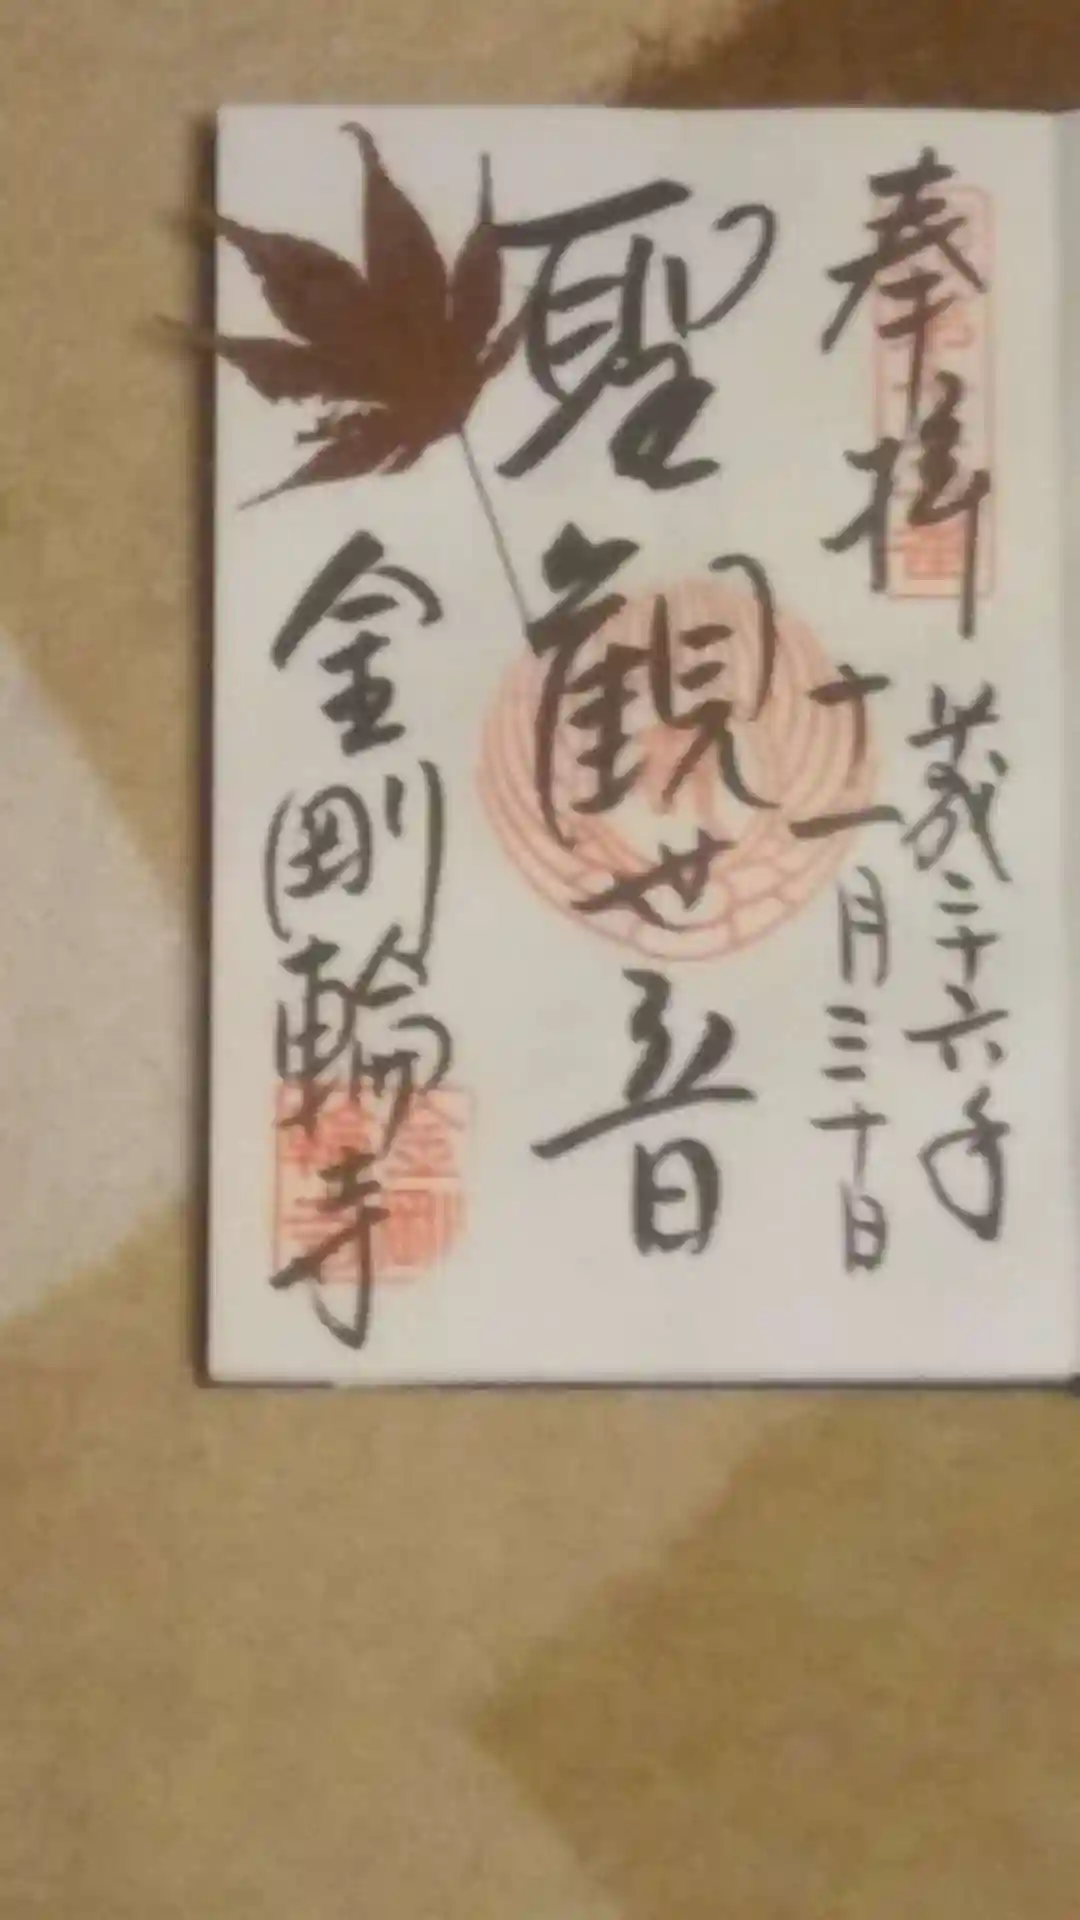 奉拝
歳二十六年
十一月三十日
聖観世音
金剛輪寺
金剛輪寺